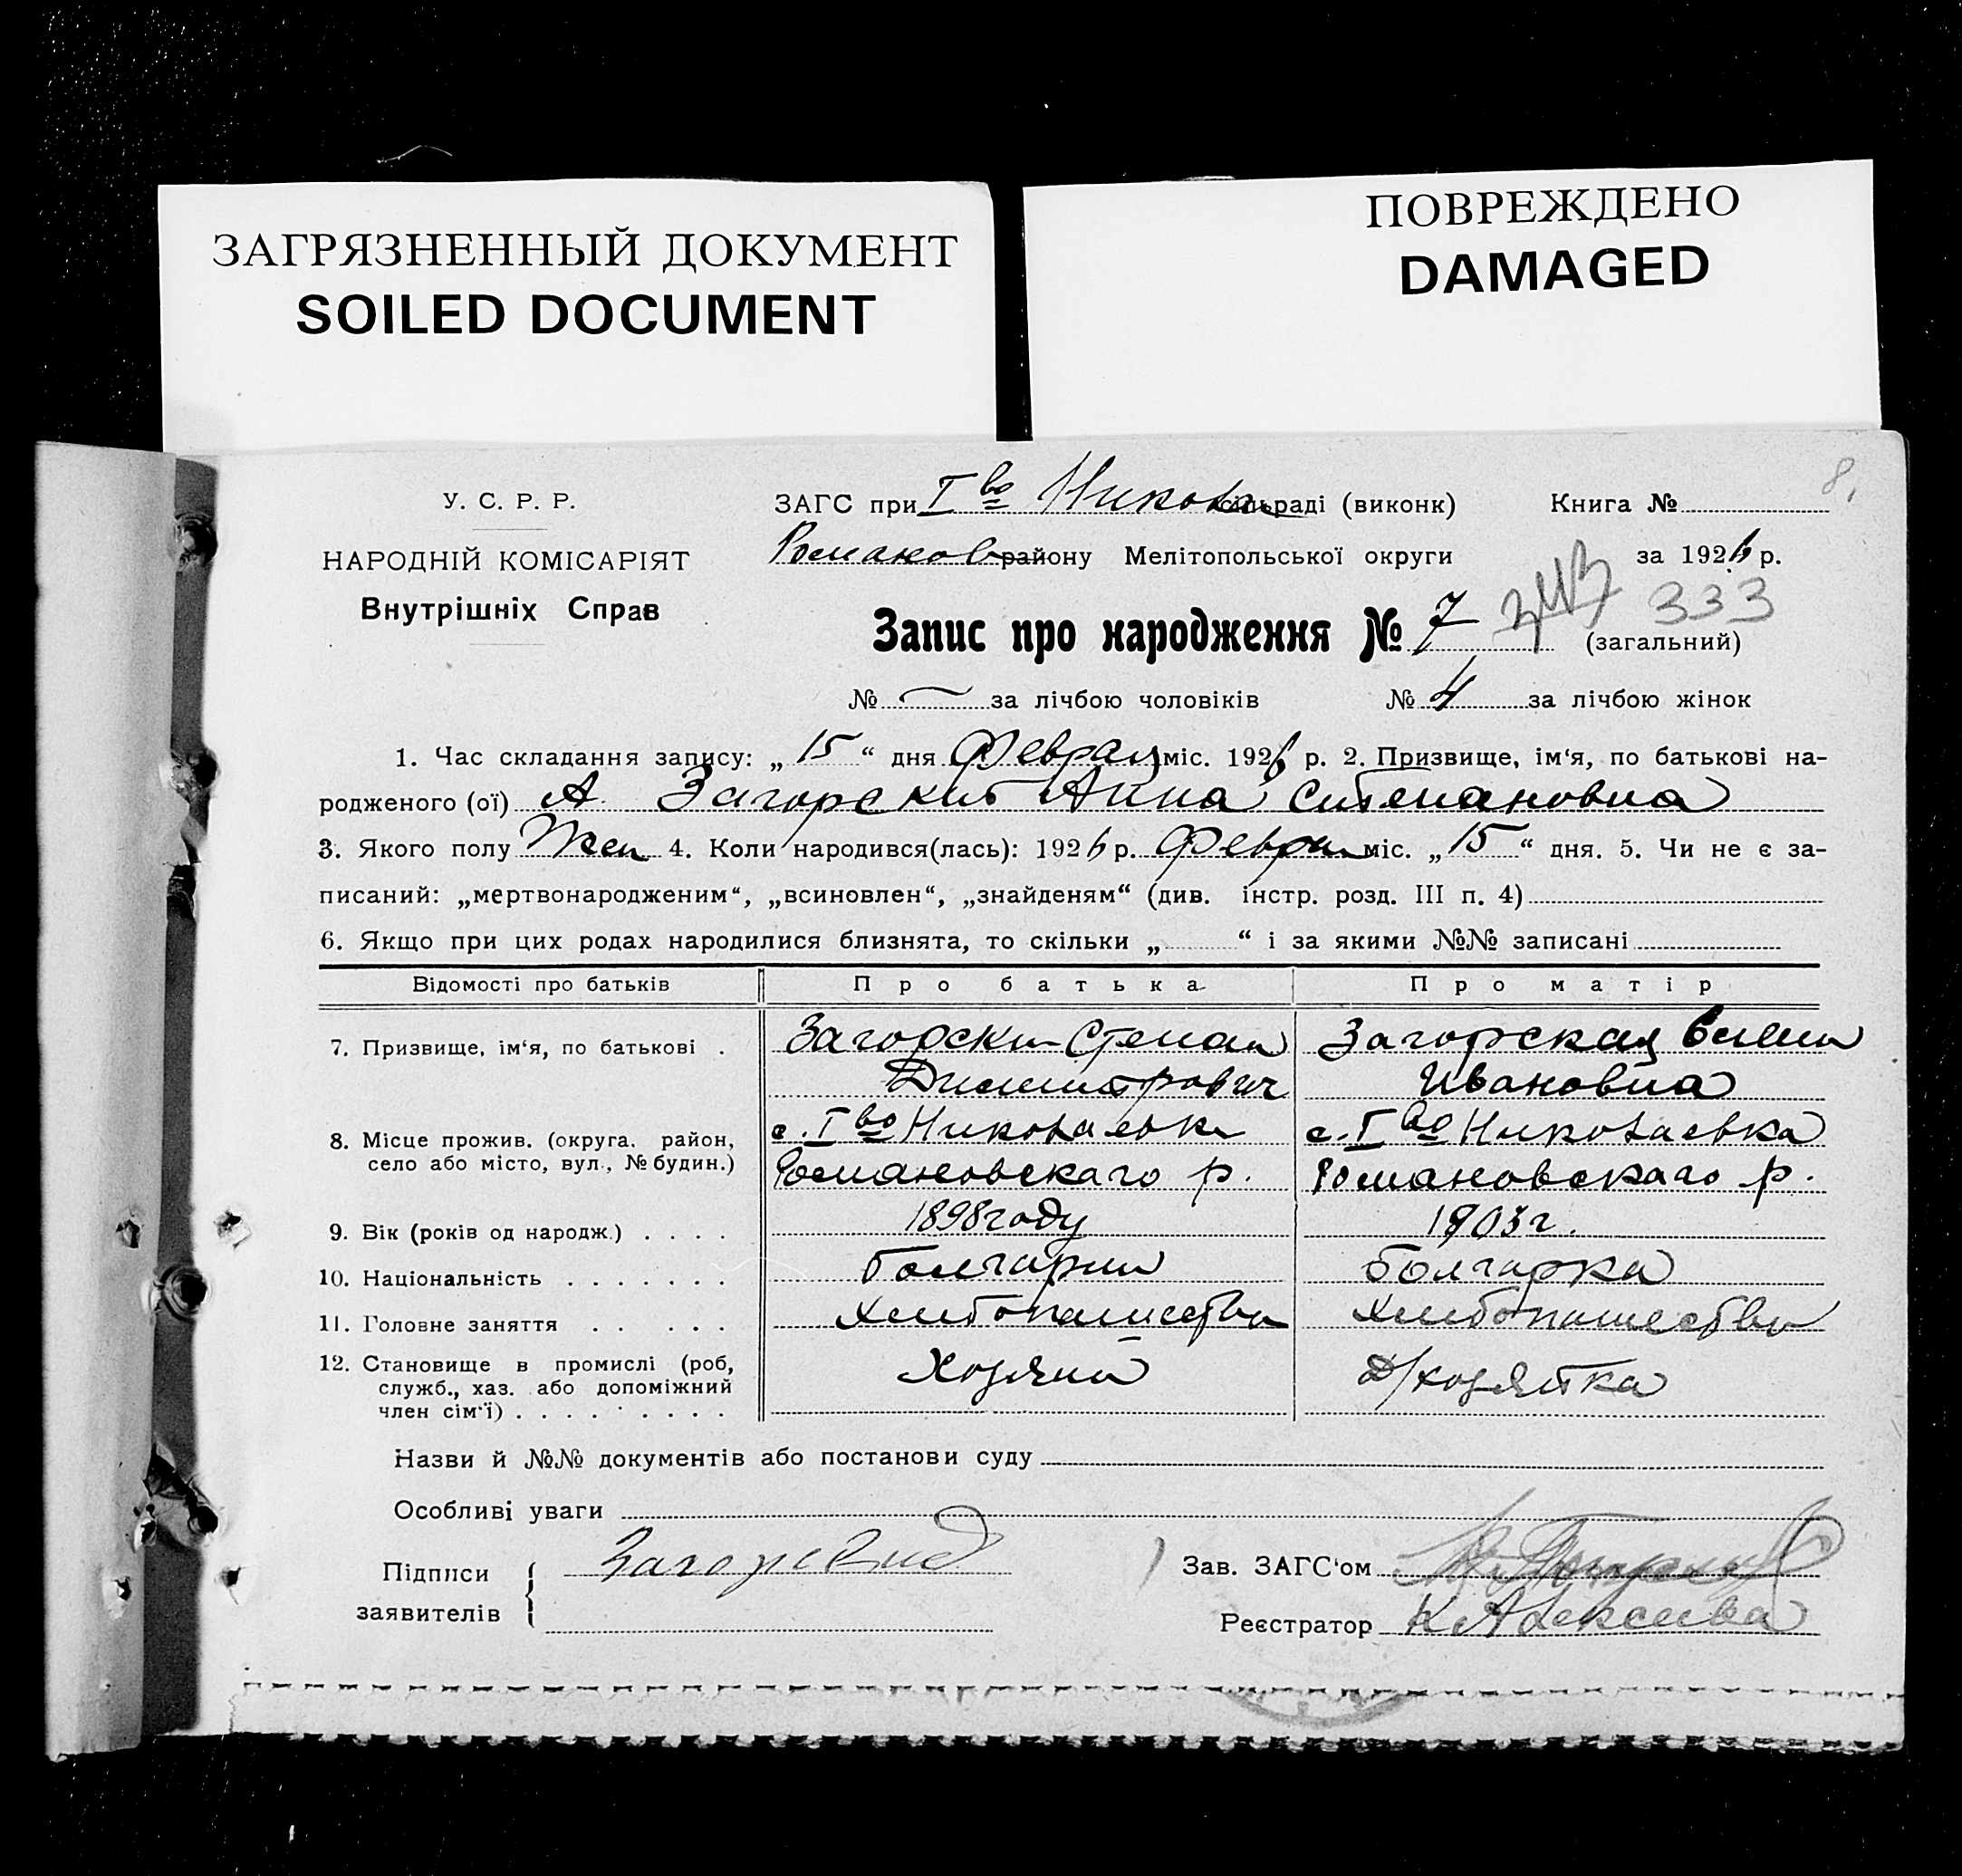 ЗАГРЯЗНЕННЫЙ ДОКУМЕНТ
SOILED DOCUMENT
ПОВРЕЖДЕНО
DAMAGED
8.
У. С. Р. Р.
НАРОДНІЙ КОМІСАРІЯТ
Внутрішніх Справ
ЗАГС при Iво Никола сільраді (виконк) Книга №
Романов району Мелітопольської округи за 1926 р.
Запис про народження № 7 333 (загальний)
№ — за лічбою чоловіків № 4 за лічбою жінок
1. Час складання запису: „ 15 “ дня Февраля міс. 1926 р. 2. Призвище, ім‘я, по батькові на-
родженого (ої) А. Загорский Анна Степановна
3. Якого полу Жен 4. Коли народився(лась): 1926 р. Феврал міс. „ 15 “ дня. 5. Чи не є за-
писаний: „мертвонародженим“, „всиновлен“, „знайденям“ (див. інстр. розд. III п. 4)
6. Якщо при цих родах народилися близнята, то скільки „ “ і за якими №№ записані
Відомості про батьків Про батька Про матір
7. Призвище, ім‘я, по батькові . Загорски Степан Загорская
Димитрович Ивановна
8. Місце прожив. (округа, район, с. Iво Николаевка с. Iво Николаевка
село або місто, вул., № будин.) Романовскаго р. Романовскаго р.
9. Вік (років од народж.) . . . . 1898 году 1903 г.
10. Національність . . . . . . . Болгарин Болгарка
11. Головне заняття . . . . . . Хлебопашество Хлебопашество
12. Становище в промислі (роб, Хозяин Д/хозяйка
служб., хаз. або допоміжний
член сім‘ї) . . . . . . . . .
Назви й №№ документів або постанови суду
Особливі уваги
Підписи Загорский Зав. ЗАГС‘ом
заявителів Реєстратор К Алексиева